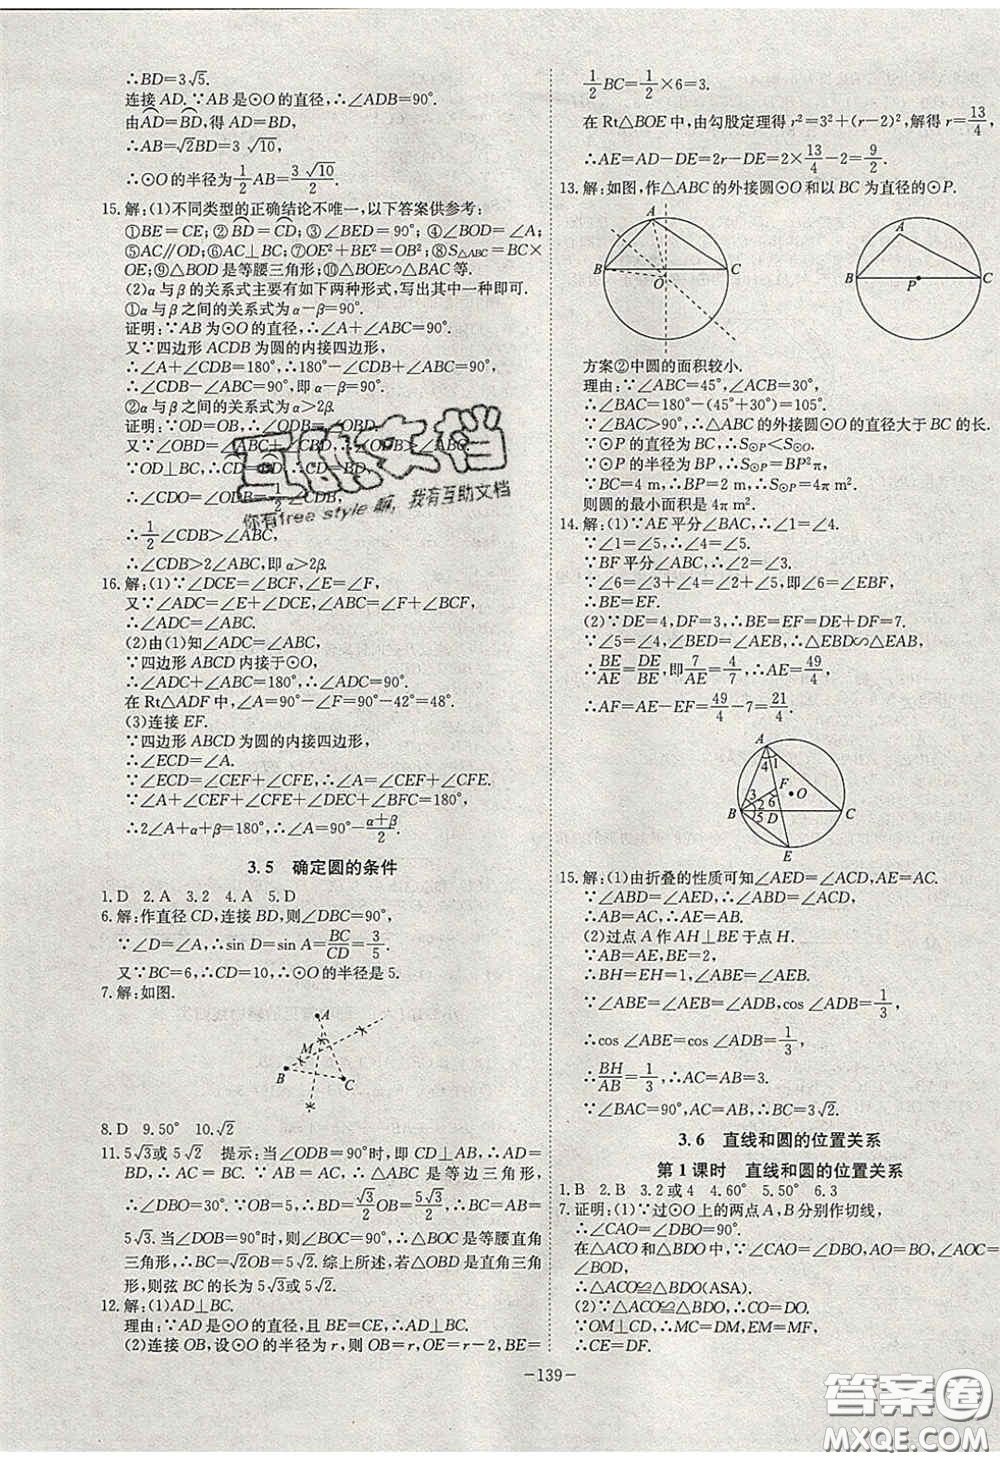 ∴BD=3√5.
连接 AD.∵AB 是⊙O 的直径,∴∠ADB=90°.
由A͡D=B͡D,得 AD=BD,
∴AB=√2BD=3 √10,
∴⊙O 的半径为1/2 AB=3 √10/2.
15.解:(1)不同类型的正确结论不唯一,以下答案供参考:
①BE=CE;②B͡D=C͡D;③∠BED=90°;④∠BOD=∠A;
⑤AC∥OD;⑥AC⊥BC;⑦OE²+BE²=OB²;⑧S△ABC=BC·
OE;⑨△BOD 是等腰三角形;⑩△BOE∽△BAC 等.
(2)α 与 β 的关系式主要有如下两种形式,写出其中一种即可.
①α 与 β 之间的关系式为 α-β=90°.
证明:∵AB 为⊙O 的直径,∴∠A+∠ABC=90°.
又∵四边形 ACDB 为圆的内接四边形,
∴∠A+∠CDB=180°,∴180°-∠CDB+∠ABC=90°,
∴∠CDB-∠ABC=90°,即 α-β=90°.
②α 与 β 之间的关系式为 α>2β.
证明:∵OD=OB,∴∠ODB=∠OBD.
又∵∠OBD=∠ABC+∠CBD,∴∠ODB>∠ABC.
∵OD⊥BC,∴CD=BD,
∴∠CDO=∠ODB=1/2∠CDB,
∴1/2∠CDB>∠ABC,
∴∠CDB>2∠ABC,即 α>2β.
16.解:(1)∵∠DCE=∠BCF,∠E=∠F,
又∵∠ADC=∠E+∠DCE,∠ABC=∠F+∠BCF,
∴∠ADC=∠ABC.
(2)由(1)知∠ADC=∠ABC,
∵四边形 ABCD 内接于⊙O,
∴∠ADC+∠ABC=180°,∴∠ADC=90°.
在 Rt△ADF 中,∠A=90°-∠F=90°-42°=48°.
(3)连接 EF.
∵四边形 ABCD 为圆的内接四边形,
∴∠ECD=∠A.
∵∠ECD=∠CEF+∠CFE,∴∠A=∠CEF+∠CFE.
∵∠A+∠CEF+∠CFE+∠DEC+∠BFC=180°,
∴2∠A+α+β=180°,∴∠A=90°-(α+β)/2.
3.5 确定圆的条件
1.D 2.A 3.2 4.A 5.D
6.解:作直径 CD,连接 BD,则∠DBC=90°,
∵∠D=∠A,∴sin D=sin A=BC/CD=3/5.
又∵BC=6,∴CD=10,∴⊙O 的半径是 5.
7.解:如图.
A
M
B
C
8.D 9.50° 10.√2
11.5√3或 5√2 提示:当∠ODB=90°时,即 CD⊥AB,∴AD=
BD,∴AC=BC.∵AB=BC,∴△ABC 是等边三角形,
∴∠DBO=30°.∵OB=5,∴BD=√3/2OB=5√3/2,∴BC=AB=
5√3.当∠DOB=90°时,则∠BOC=90°,∴△BOC 是等腰直角
三角形,∴BC=√2OB=5√2.综上所述,若△OBD 是直角三角
形,则弦 BC 的长为 5√3或 5√2.
12.解:(1)AD⊥BC.
理由:∵AD 是⊙O 的直径,且 BE=CE,∴AD⊥BC.
(2)连接 OB,设⊙O 的半径为 r,则 OB=r,OE=r-2,BE=
1/2 BC=1/2×6=3.
在 Rt△BOE 中,由勾股定理得 r²=3²+(r-2)²,解得 r=13/4,
∴AE=AD-DE=2r-DE=2×13/4-2=9/2.
13.解:如图,作△ABC 的外接圆⊙O 和以 BC 为直径的⊙P.
A
B
C
O
A
B
C
P
方案②中圆的面积较小.
理由:∵∠ABC=45°,∠ACB=30°,
∴∠BAC=180°-(45°+30°)=105°.
∵∠BAC>90°,∴△ABC 的外接圆⊙O 的直径大于 BC 的长.
∵⊙P 的直径为 BC,∴S⊙P<S⊙O.
∵⊙P 的半径为 BP,∴S⊙P=BP²π.
∵BC=4 m,∴BP=2 m,∴S⊙P=4π m².
则圆的最小面积是 4π m².
14.解:(1)∵AE 平分∠BAC,∴∠1=∠4.
∵∠1=∠5,∴∠4=∠5.
∵BF 平分∠ABC,∴∠2=∠3.
∵∠6=∠3+∠4=∠2+∠5,即∠6=∠EBF,
∴BE=EF.
(2)∵DE=4,DF=3,∴BE=EF=DE+DF=7.
∵∠5=∠4,∠BED=∠AEB,∴△EBD∽△EAB,
∴BE/AE=DE/BE,即7/AE=4/7,∴AE=49/4,
∴AF=AE-EF=49/4-7=21/4.
A
4 1
F
3 2 6
O
B
5 D
C
E
15.解:(1)由折叠的性质可知∠AED=∠ACD,AE=AC.
∵∠ABD=∠AED,∴∠ABD=∠ACD,
∴AB=AC,∴AE=AB.
(2)过点 A 作 AH⊥BE 于点 H.
∵AB=AE,BE=2,
∴BH=EH=1,∠ABE=∠AEB.
∵∠ABE=∠AEB=∠ADB,cos∠ADB=1/3,
∴cos∠ABE=cos∠ADB=1/3,
∴BH/AB=1/3,∴AC=AB=3.
∵∠BAC=90°,AC=AB,∴BC=3√2.
3.6 直线和圆的位置关系
第 1 课时 直线和圆的位置关系
1.B 2.B 3.2 或 4 4.60° 5.50° 6.3
7.证明:(1)∵过⊙O 上的两点 A,B 分别作切线,
∴∠CAO=∠DBO=90°.
在△ACO 和△BDO 中,∵∠CAO=∠DBO,AO=BO,∠AOC=
∠BOD,
∴△ACO≌△BDO(ASA).
(2)∵△ACO≌△BDO,∴CO=DO.
∵OM⊥CD,∴CM=DM,∴EM=FM,
∴CE=DF.
-139-
互助文档
你有free style 嘛,我有互助文档
答案圈
MXQE.COM